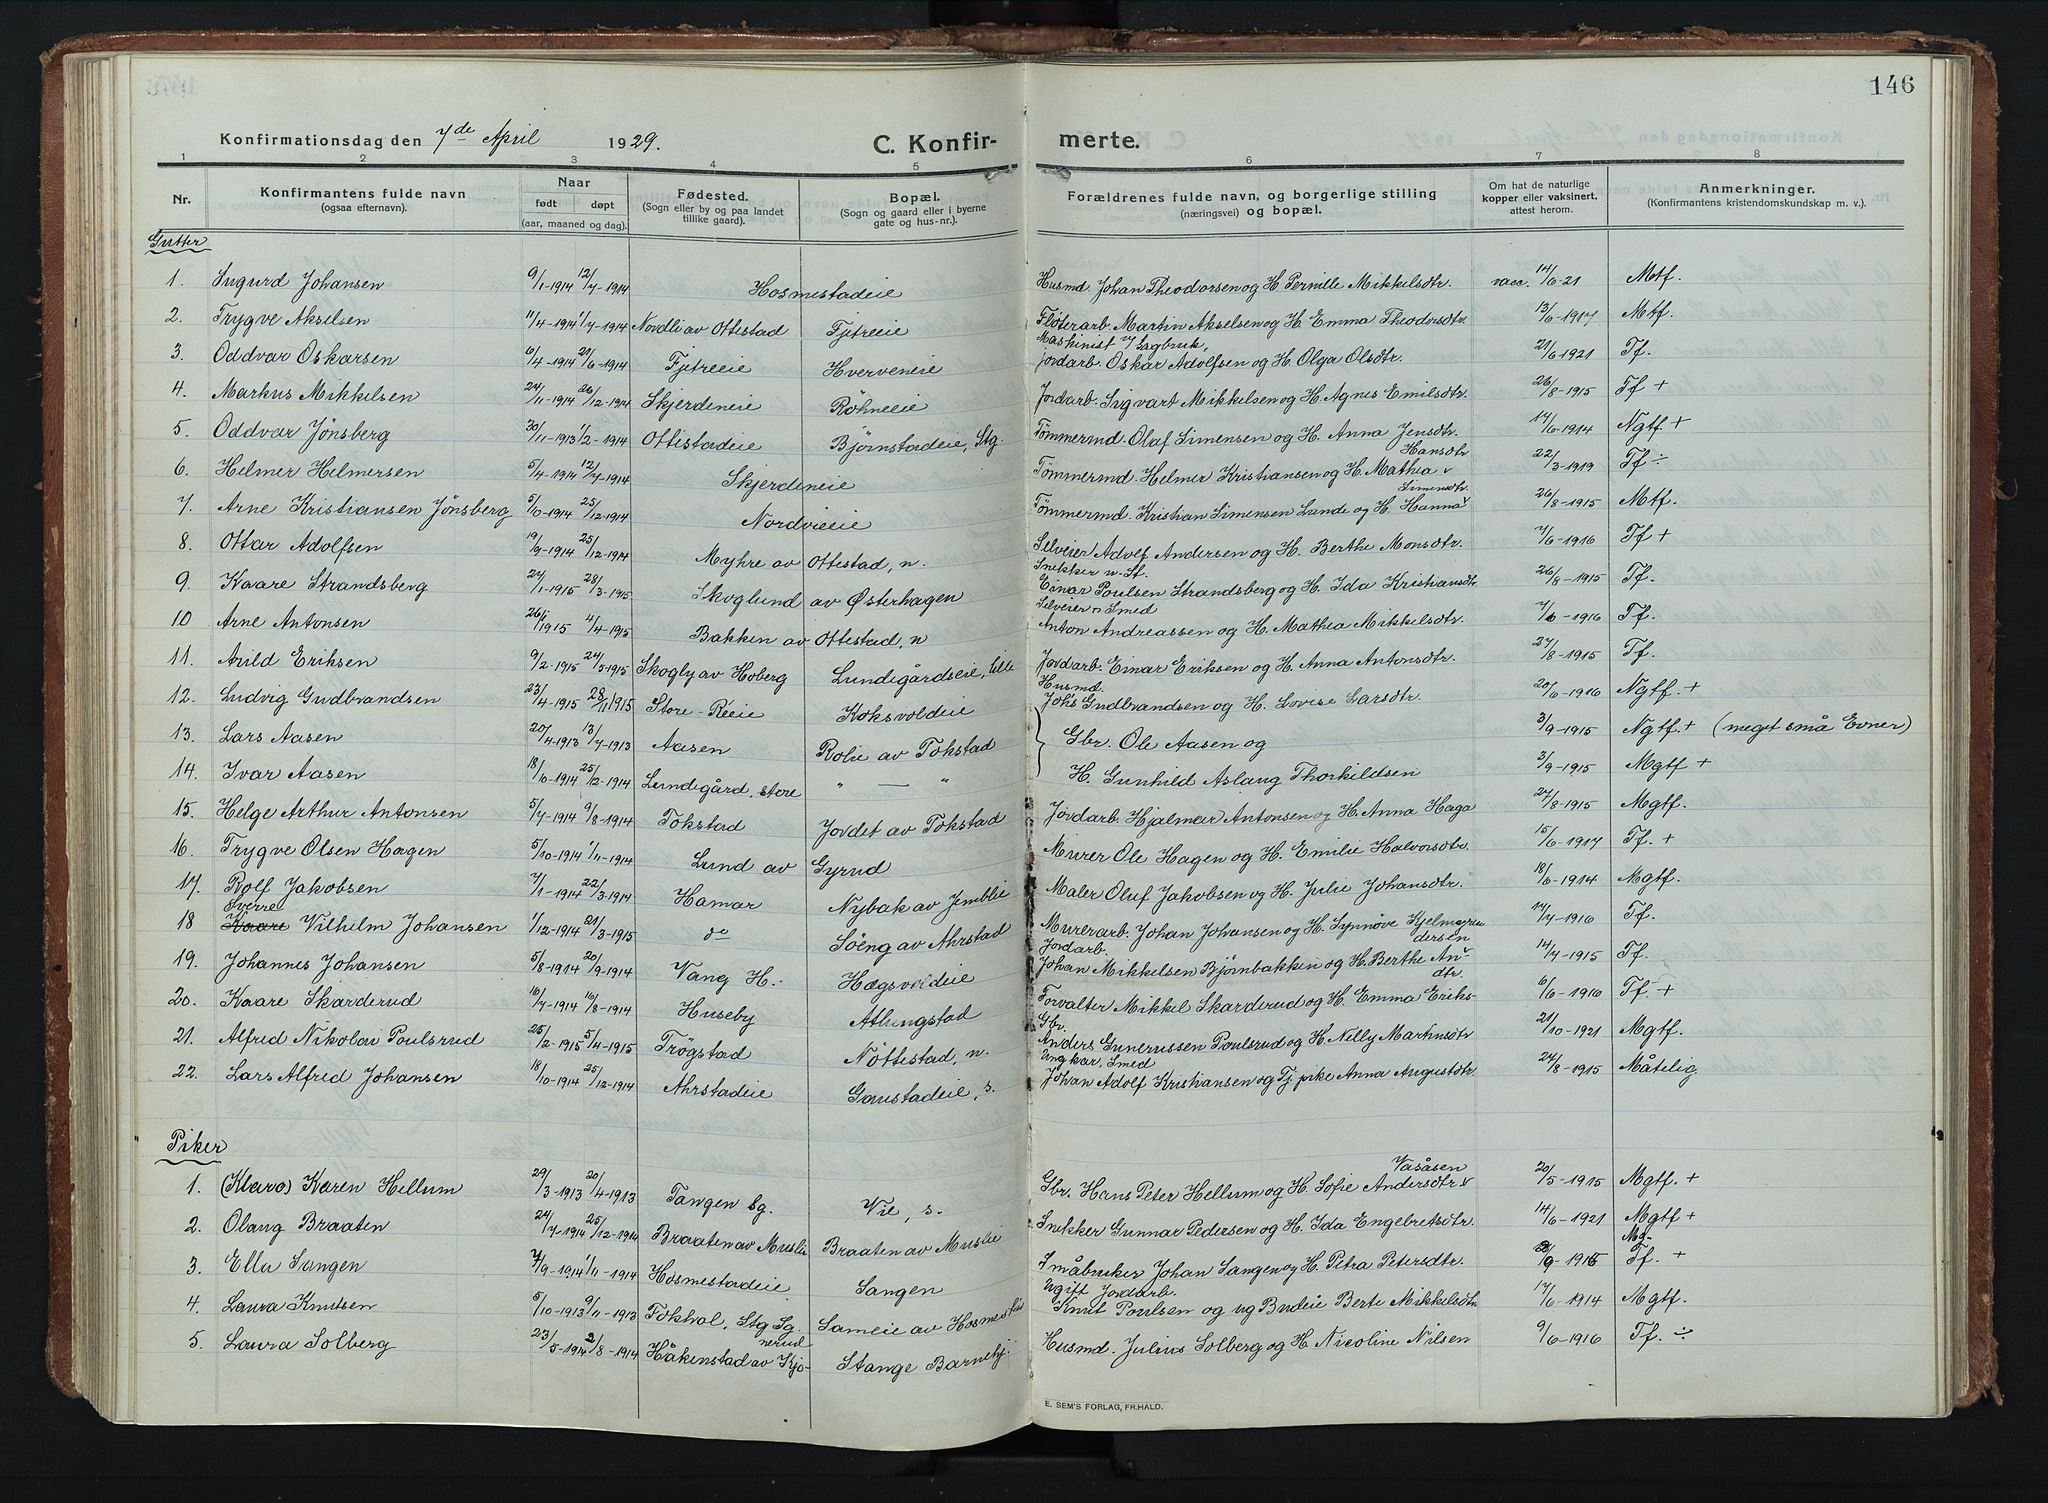 146
Konfirmationsdag den 7de April 1929.
C. Konfirmerte.
1 2 3 4 5 6 7 8
Nr.
Konfirmantens fulde navn
(ogsaa efternavn).
Naar
født døpt
(aar, maaned og dag).
Fødested.
(Sogn eller by og paa landet
tillike gaard).
Bopæl.
(Sogn og gaard eller i byerne
gate og hus-nr.).
Forældrenes fulde navn, og borgerlige stilling
(næringsvei) og bopæl.
Om hat de naturlige
kopper eller vaksinert,
attest herom.
Anmerkninger.
(Konfirmantens kristendomskundskap m. v.).
Gutter
1. Sugurd Johansen 9/1-1914 12/7-1914 Hosmestadeie Husmd. Johan Theodorsen og H. Pernille Mikkelsdtr. vacc. 14/6-21 Mtf.
2. Trygve Akselsen 11/4-1914 1/7-1914 Nordli av Ottestad Fjetreeie Fløterarb. Martin Akselsen og H. Emma Theodorsdtr. 13/6-1917 Mtf.
3. Oddvar Oskarsen 6/4-1914 21/6-1914 Fjetreeie Hverveneie Maskinist v/ Sagbruk, Jordarb. Oskar Adolfsen og H. Olga Olsdtr. 21/6 1921 Tf.
4. Markus Mikkelsen 24/11-1914 26/12-1914 Skjerdeneie Røhneeie Jordarb. Sigvart Mikkelsen og H. Agnes Emilsdtr. 26/8-1915 Tf +
5. Oddvar Jønsberg 30/11-1913 1/2-1914 Ottestadeie Bjørnstadeie, Stg. Tømmermd. Olaf Simensen og H. Anna Jensdtr. 14/6-1914 Ngtf +
6. Helmer Helmersen 5/4-1914 12/7-1914 Skjerdeneie Tømmermd. Helmer Kristiansen og H. Mathea Hansdtr 22/3-1919 Tf ÷
7. Arne Kristiansen Jønsberg 5/10-1914 25/12-1914 Nordvieeie Tømmermd. Kristian Simensen Lunde og H. Hanna Simensdtr. 26/8-1915 Mtf.
8. Ottar Adolfsen 19/9-1914 25/12-1914 Myhre av Ottestad, n. Selveier Adolf Andersen og H. Berthe Monsdtr. 7/6-1916 Tf +
9. Kaare Strandsberg 27/1-1915 28/3-1915 Skoglund av Østerhagen Snekker u. St. Einar Poulsen Strandsberg og H. Ida Kristiansdtr. 26/8-1915 Tf.
10 Arne Antonsen 26/1 1915 4/4-1915 Bakken av Ottestad, n Selveier n Smed Anton Andreassen og H. Mathea Mikkelsdtr. 7/6-1916 Tf.
11. Arild Eriksen 9/2-1915 24/5-1915 Skogly av Hoberg Lundegårdseie, lille Jordarb. Einar Eriksen og H. Anna Antonsdtr. 27/8-1915 Tf.
12. Ludvig Gudbrandsen 23/4-1915 28/11 1915 Store-Réeie Koksvoldeie Husmd. Johs Gudbrandsen og H. Lovise Larsdtr. 20/6-1916 Ngtf. +
13. Lars Aasen 20/4-1913 13/7-1913 Aasen Rolie av Tokstad Gbr. Ole Aasen og 3/9-1915 Ngtf. + (meget små Evner)
14. Ivar Aasen 18/10-1914 25/12-1914 Lundegård, store " — " H. Gunhild Aslaug Thorkildsen 3/9-1915 Mgtf +
15. Helge Arthur Antonsen 5/7-1914 9/8-1914 Tokstad Jordet av Tokstad Jordarb. Hjalmar Antonsen og H. Anna Haga 27/8-1915 Mgtf.
16. Trygve Olsen Hagen 5/10-1914 1/11-1914 Lund av Gyrud Murer Ole Hagen og H. Emilie Halvorsdtr. 15/6-1917 Tf. +
17. Rolf Jakobsen 7/1-1914 22/3-1914 Hamar Nybak av Jemblie Maler Oluf Jakobsen og H. Julie Johansdtr. 18/6-1914 Mgtf.
18 Sverre Kaare Vilhelm Johansen 1/12-1914 21/3-1915 do Söeng av Ahrstad Murerarb. Johan Johansen og H. Synnøve 14/7-1916 Tf.
19. Johannes Johansen 5/8-1914 20/9-1914 Vang H. Hægsvoldeie Jordarb. Johan Mikkelsen Bjørnbakken og H. Berthe Andersen 14/7-1915 Tf.
20. Kaare Skarderud 16/7-1914 16/8-1914 Huseby Atlungstad Forvalter Mikkel Skarderud og H. Emma Eriksdtr. 6/6-1916 Tf. +
21. Alfred Nikolai Poulsrud 25/2-1915 5/4-1915 Trögstad Nöttestad, n. Gbr. Anders Gunerussen Poulsrud og H. Nelly Markusdtr 21/10-1921 Mgtf.
22. Lars Alfred Johansen 18/10-1914 25/12-1914 Ahrstadeie Gaustadeie, s. Ungkar, Smed Johan Adolf Kristiansen og Tj. pike Anna Augustdtr. 24/8-1915 Måtelig
Piker
1. (Klara) Karen Hellum 29/3-1913 20/4-1913 Tangen Sg. Vie, s. Gbr. Hans Peter Hellum og H. Sofie Andersdtr Vasåsen 20/5-1915 Mgtf. +
2. Olaug Braaten 24/7-1914 25/12-1914 Braaten av Muslie Braaten av Muslie Snekker Gunnar Pedersen og H. Ida Engebretsdtr. 14/6-1921 Mgtf +
3. Ella Sangen 7/9-1914 1/11-1914 Hosmestadeie Sangen Småbruker Johan Sangen og H. Petra Petersdtr. Tf. +
4. Laura Knutsen 5/10-1913 9/11-1913 Tokhol, Stg Sg. Sameie av Hosmestad Ugift Jordarb. Knut Poulsen og ug Budeie Berte Mikkelsdtr 17/6-1914 Mgtf.
5. Laura Solberg 23/5-1914 2/8-1914 Håkenstad av Kjonerud Stange Barnehj. Husmd. Julius Solberg og H. Nicoline Nilsen 9/6-1916 Tf. ÷
E. SEM'S FORLAG, FR.HALD.